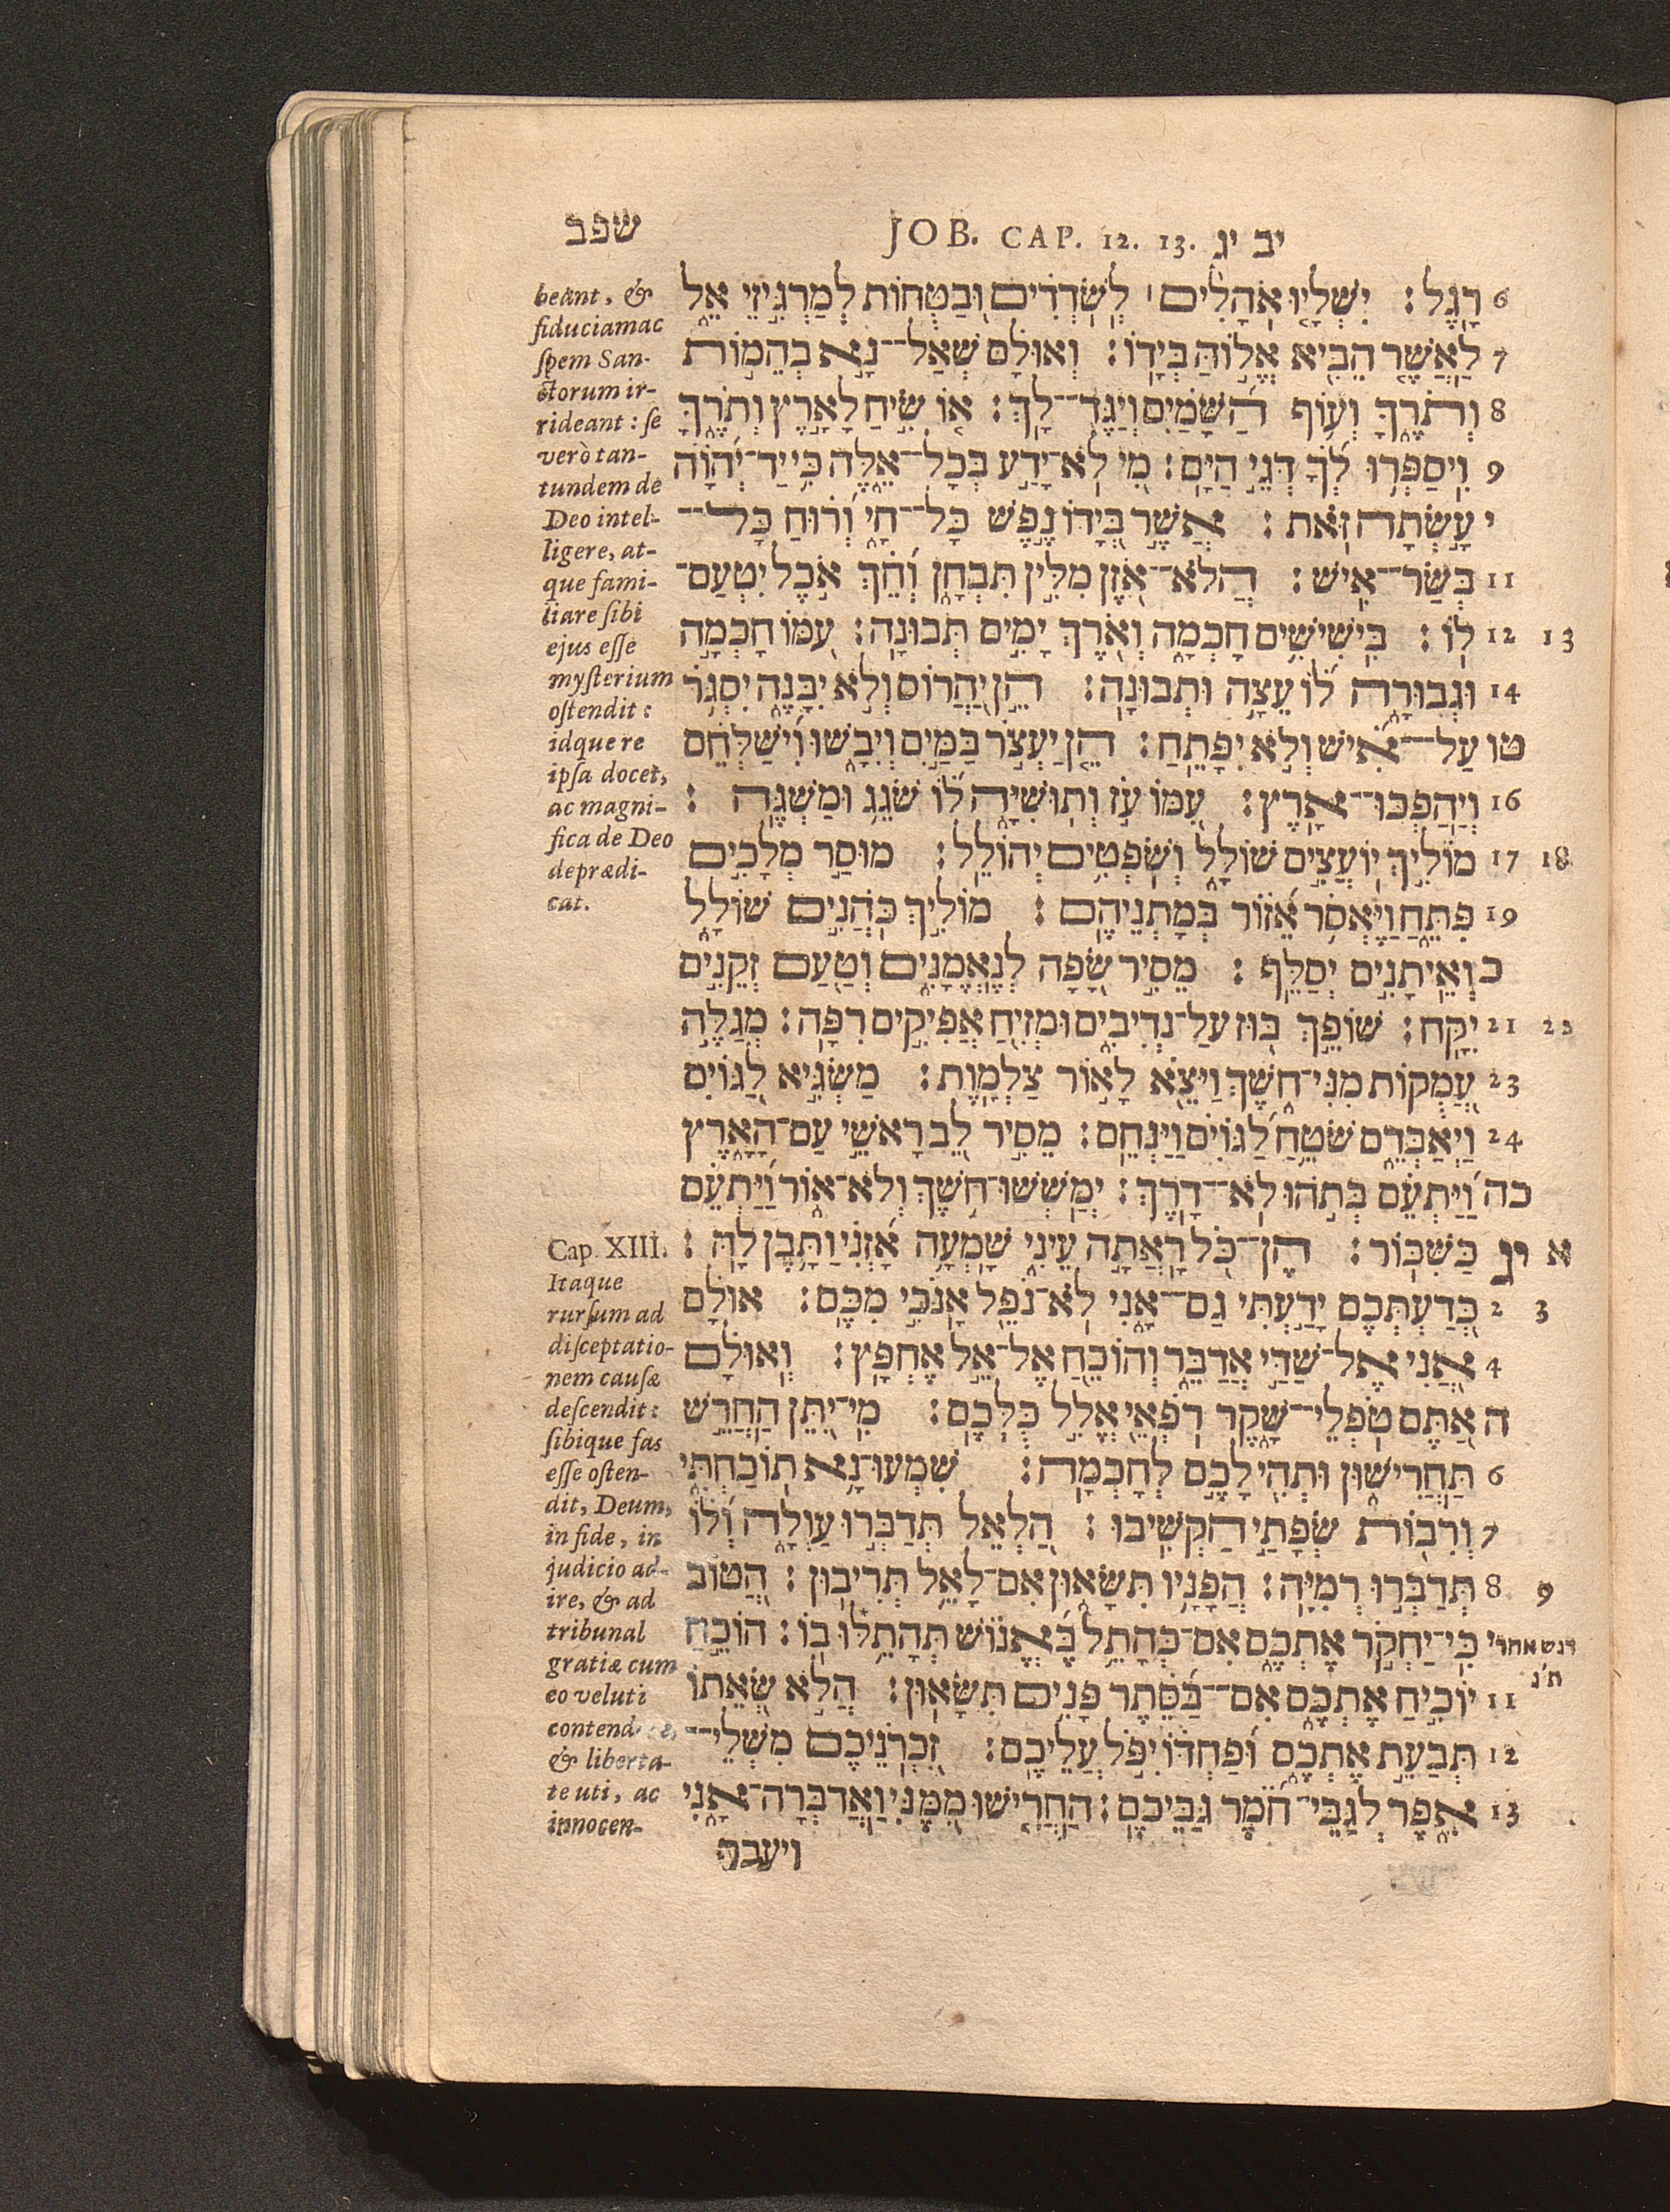 שפב JOB. CAP. 12. 13. יב יג
6 רָגֶל׃ יִשְׁלָיוּ אֹהָלִים׀ לְשֹׁדְדִים וּבַטֻּחוֹת לְמַרְגִּיזֵי אֵל
7 לַאֲשֶׁר הֵבִיא אֱלוֹהַּ בְּיָדוֹ׃ וְאוּלָם שְׁאַל־נָא בְהֵמוֹת
8 וְתֹרֶךָּ וְעוֹף הַשָּׁמַיִם וְיַגֶּד־לָךְ׃ אוֹ שִׂיחַ לָאָרֶץ וְתֹרֶךָּ
9 וִיסַפְּרוּ לְךָ דְּגֵי הַיָּם׃ מִי לֹא־יָדַע בְּכָל־אֵלֶּה כִּי יַד־יְהוָֹה
י עָשְׂתָה זֹּאת׃ אֲשֶׁר בְּיָדוֹ נֶפֶשׁ כָּל־חָי וְרוּחַ כָּל־
11 בְּשַׂר־אִישׁ׃ הֲלֹא־אֹזֶן מִלִּין תִּבְחָן וְחֵךְ אֹכֶל יִטְעַם־
12 13 לוֹ׃ בִּישִׁישִׁים חָכְמָה וְאֹרֶךְ יָמִים תְּבוּנָה׃ עִמּוֹ חָכְמָה
14 וּגְבוּרָה לוֹ עֵצָה וּתְבוּנָה׃ הֵן יַהֲרוֹס וְלֹא יִבָּנֶה יִסְגֹּר
טו עַל־אִישׁ וְלֹא יִפָּתֵחַ׃ הֵן יַעְצֹר בַּמַּיִם וְיִבָשׁוּ וִישַׁלְּחֵם
16 וְיַהַפְכוּ־אָרֶץ׃ עִמּוֹ עֹז וְתוּשִׁיָּה לוֹ שֹׁגֵג וּמַשְׁגֶּה׃
17 18 מוֹלִיךְ יוֹעֲצִים שׁוֹלָל וְשֹׁפְטִים יְהוֹלֵל׃ מוּסַר מְלָכִים
19 פִּתֵּחַ וַיֶּאְסֹר אֵזוֹר בְּמָתְנֵיהֶם׃ מוֹלִיךְ כֹּהֲנִים שׁוֹלָל
כ וְאֵיתָנִים יְסַלֵּף׃ מֵסִיר שָׂפָה לְנֶאֱמָנִים וְטַעַם זְקֵנִים
21 22 יִקָּח׃ שׁוֹפֵךְ בּוּז עַל־נְדִיבִים וּמְזִיחַ אֲפִיקִים רִפָּה׃ מְגַלֶּה
23 עֲמֻקוֹת מִנִּי־חֹשֶׁךְ וַיֹּצֵא לָאוֹר צַלְמָוֶת׃ מַשְׂגִּיא לַגּוֹיִם
24 וַיְאַבְּדֵם שֹׁטֵחַ לַגּוֹיִם וַיַּנְחֵם׃ מֵסִיר לֵב רָאשֵׁי עַם־הָאָרֶץ
כה וַיַּתְעֵם בְּתֹהוּ לֹא־דָרֶךְ׃ יְמַשְׁשׁוּ־חֹשֶׁךְ וְלֹא־אוֹר וַיַּתְעֵם
א יג כַּשִּׁכּוֹר׃ הֶן־כֹּל רָאֲתָה עֵינִי שָׁמְעָה אָזְנִי וַתָּבֶן לָהּ׃
2 3 כְּדַעְתְּכֶם יָדַעְתִּי גַם־אָנִי לֹא־נֹפֵל אָנֹכִי מִכֶּם׃ אוּלָם
4 אֲנִי אֶל־שַׁדַּי אֲדַבֵּר וְהוֹכֵחַ אֶל־אֵל אֶחְפָּץ׃ וְאוּלָם
ה אַתֶּם טֹפְלֵי־שָׁקֶר רֹפְאֵי אֱלִל כֻּלְּכֶם׃ מִי־יִתֵּן הַחֲרֵשׁ
6 תַּחֲרִישׁוּן וּתְהִי לָכֶם לְחָכְמָה׃ שִׁמְעוּ־נָא תוֹכַחְתִּי
7 וְרִבוֹת שְׂפָתַי הַקְשִׁיבוּ׃ הַלְאֵל תְּדַבְּרוּ עַוְלָה וְלוֹ
8 9 תְּדַבְּרוּ רְמִיָּה׃ הֲפָנָיו תִּשָּׂאוּן אִם־לָאֵל תְּרִיבוּן׃ הֲטוֹב
י כִּי־יַחְקֹר אֶתְכֶם אִם־כְּהָתֵל בֶּאֱנוֹשׁ תְּהָתֵלּוּ בוֹ׃ הוֹכֵחַ
דגש אחר ח׳נ
11 יוֹכִיחַ אֶתְכֶם אִם־בַּסֵּתֶר פָּנִים תִּשָּׂאוּן׃ הֲלֹא שְׂאֵתוֹ
12 תְּבַעֵת אֶתְכֶם וּפַחְדּוֹ יִפֹּל עֲלֵיכֶם׃ זִכְרֹנֵיכֶם מִשְׁלֵי־
13 אֵפֶר לְגַבֵּי־חֹמֶר גַּבֵּיכֶם׃ הַחֲרִישׁוּ מִמֶּנִּי וַאֲדַבְּרָה־אָנִי
ויעבר
beant, &
fiduciam ac
spem San-
ctorum ir-
rideant: se
verò tan-
tundem de
Deo intel-
ligere, at-
que fami-
liare sibi
ejus esse
mysterium
ostendit:
idque re
ipsa docet,
ac magni-
fica de Deo
deprædi-
cat.
Cap. XIII.
Itaque
rursum ad
disceptatio-
nem causæ
descendit:
sibique fas
esse osten-
dit, Deum,
in fide, in
judicio ad-
ire, & ad
tribunal
gratiæ cum
eo veluti
& liberta-
te uti, ac
innocen-